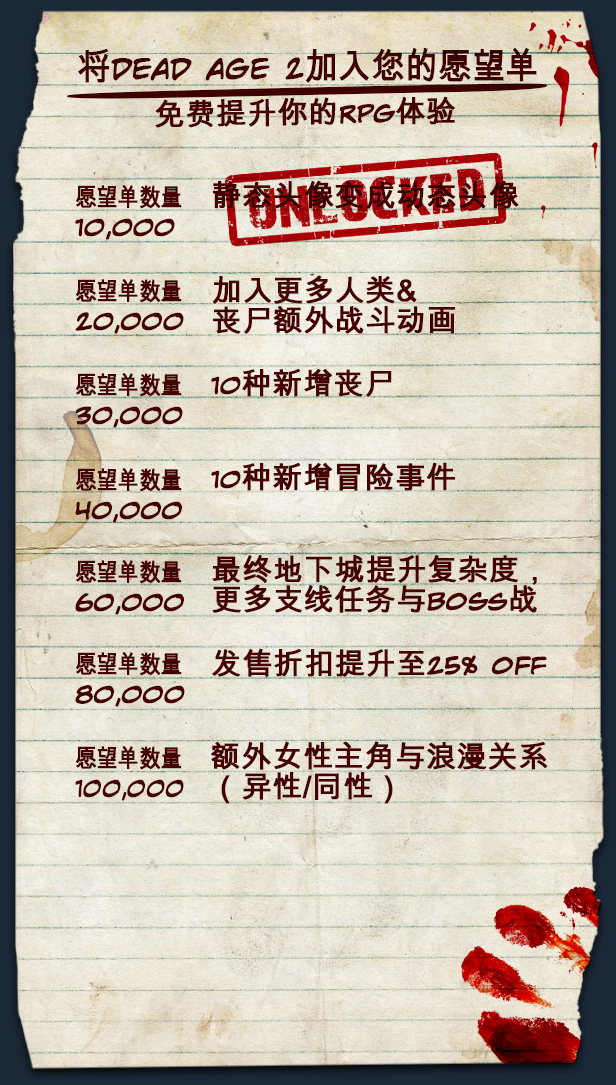 将DEAD AGE 2加入您的愿望单
免费提升你的RPG体验
愿望单数量 静态头像变成动态头像
10,000
UNLOCKED
愿望单数量 加入更多人类&
20,000 丧尸额外战斗动画
愿望单数量 10种新增丧尸
30,000
愿望单数量 10种新增冒险事件
40,000
愿望单数量 最终地下城提升复杂度，
60,000 更多支线任务与BOSS战
愿望单数量 发售折扣提升至25% OFF
80,000
愿望单数量 额外女性主角与浪漫关系
100,000 （异性/同性）